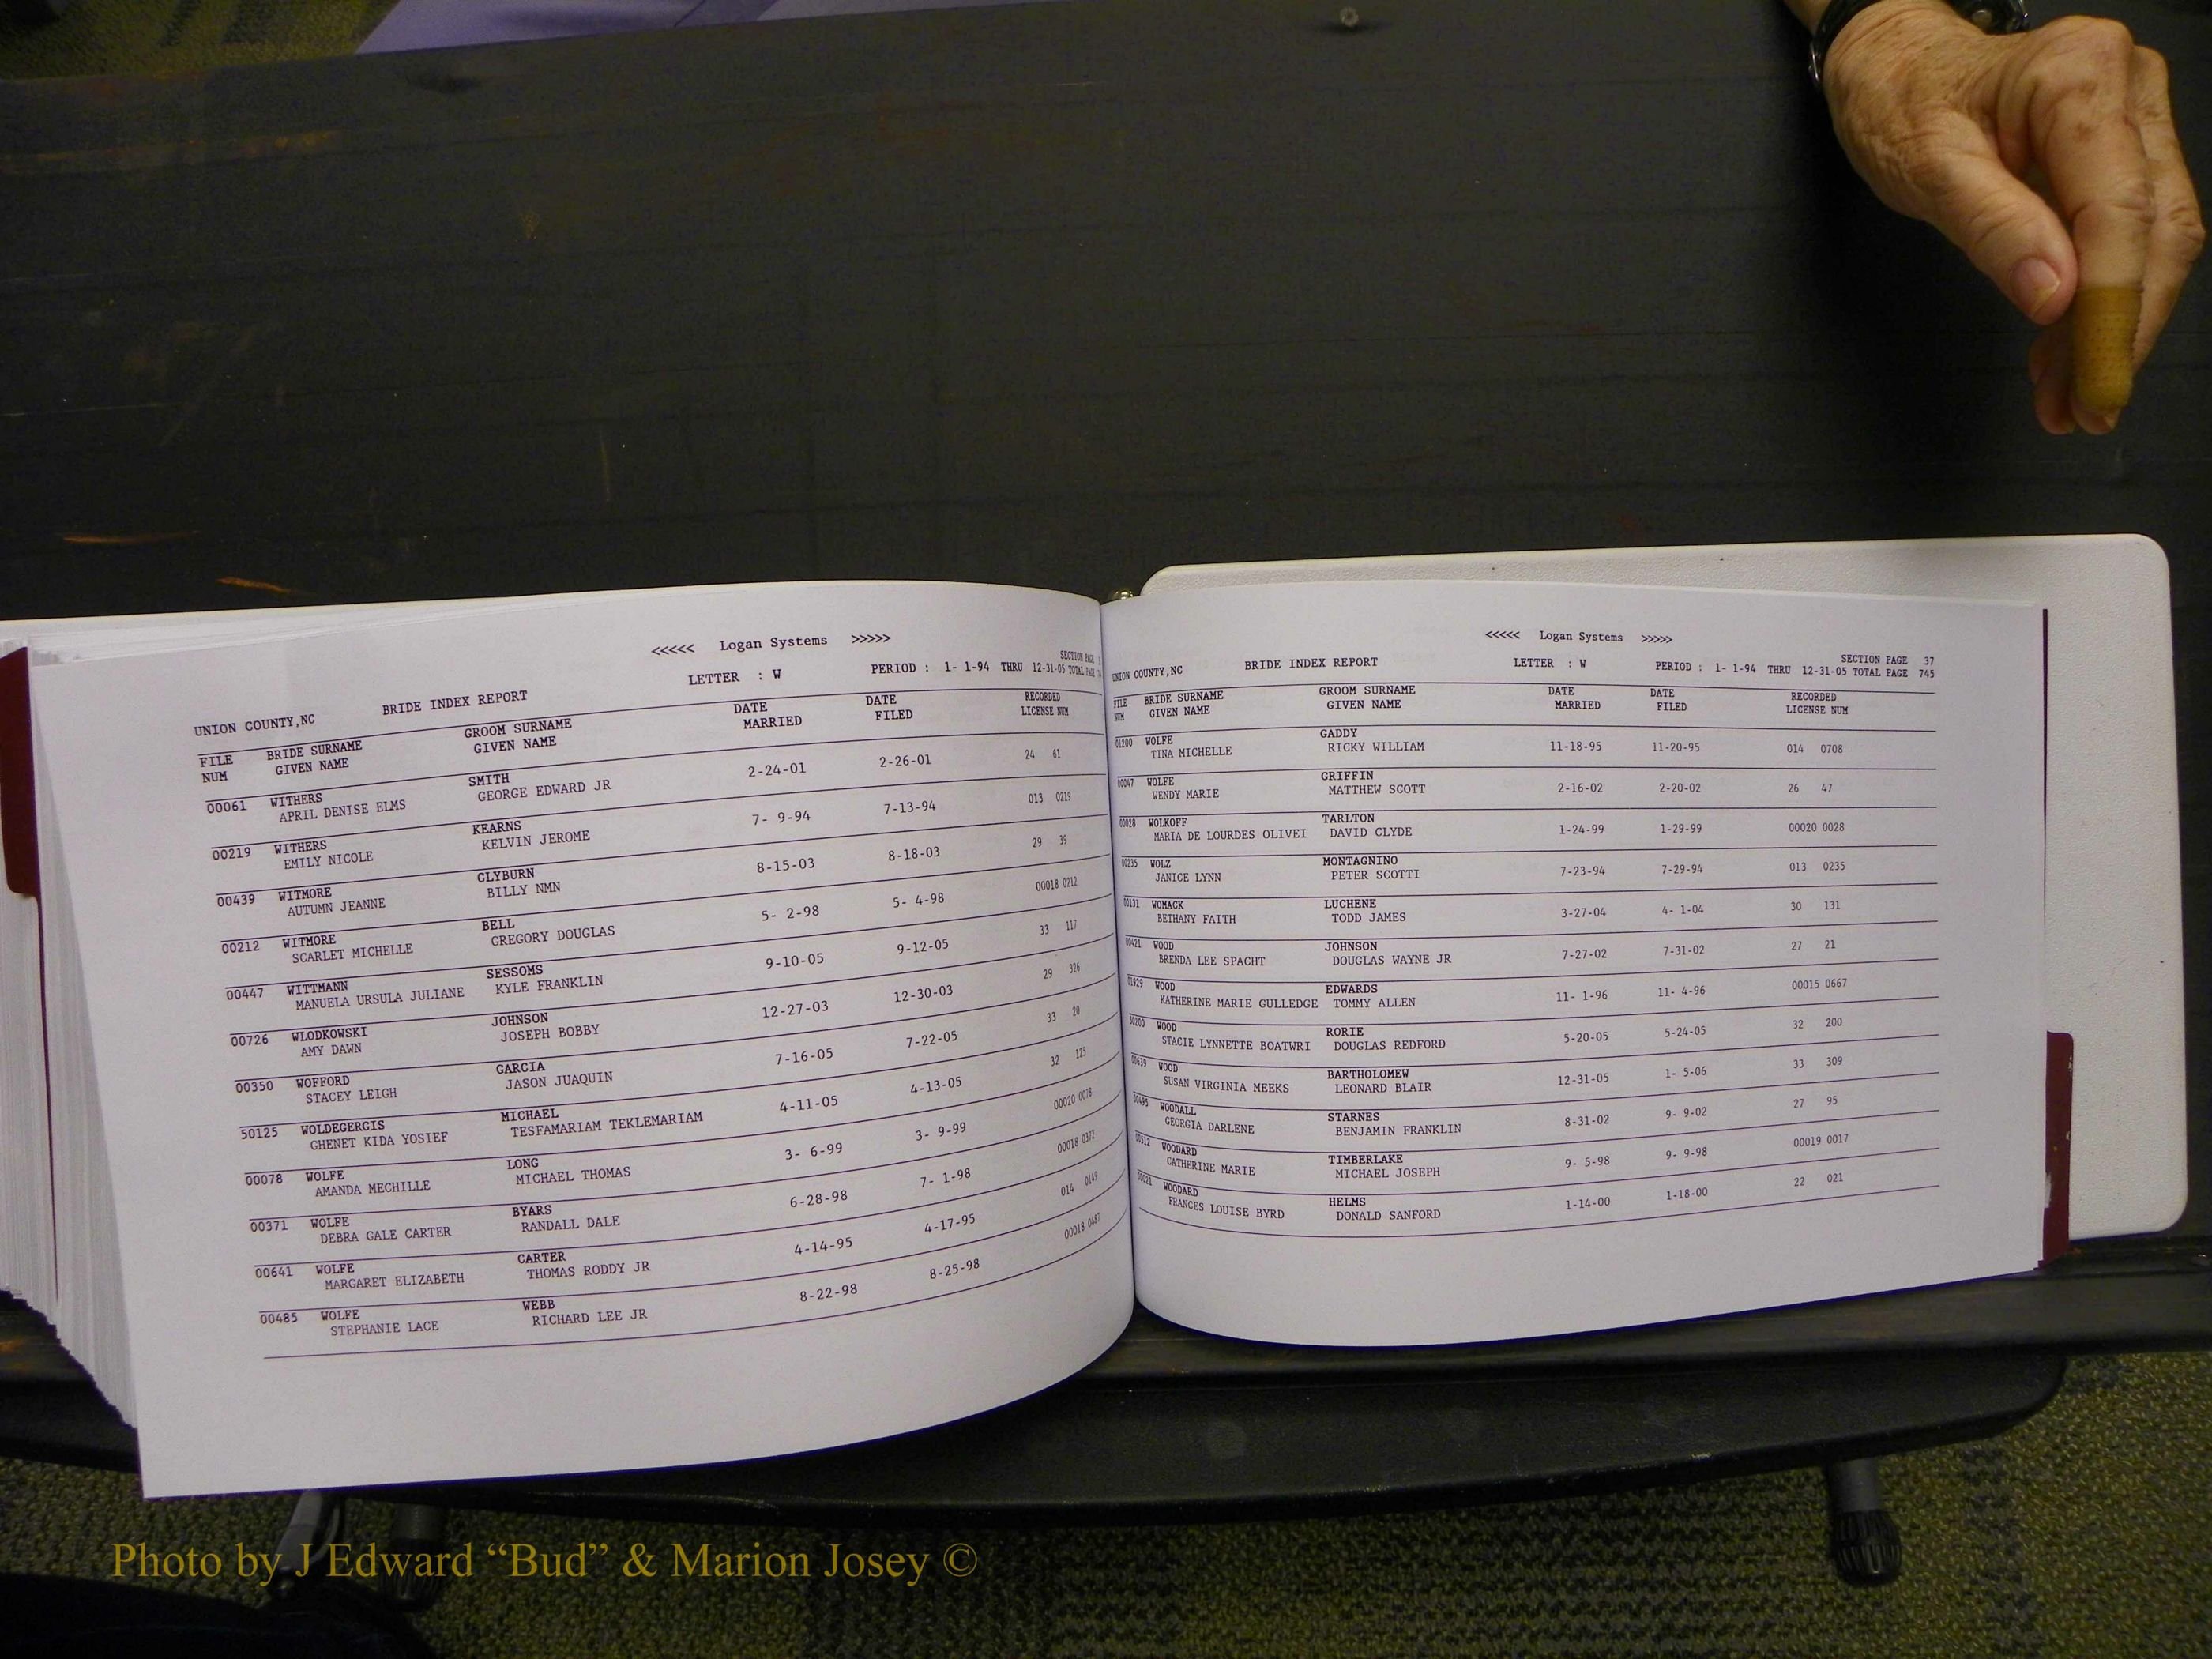 <<<<< Logan Systems >>>>>
UNION COUNTY,NC BRIDE INDEX REPORT LETTER : W PERIOD : 1- 1-94 THRU 12-31-05 SECTION PAGE
TOTAL PAGE
FILE BRIDE SURNAME GROOM SURNAME DATE DATE RECORDED
NUM GIVEN NAME GIVEN NAME MARRIED FILED LICENSE NUM
00061 WITHERS SMITH 2-24-01 2-26-01 24 61
APRIL DENISE ELMS GEORGE EDWARD JR
00219 WITHERS KEARNS 7- 9-94 7-13-94 013 0219
EMILY NICOLE KELVIN JEROME
00439 WITMORE CLYBURN 8-15-03 8-18-03 29 39
AUTUMN JEANNE BILLY NMN
00212 WITMORE BELL 5- 2-98 5- 4-98 00018 0212
SCARLET MICHELLE GREGORY DOUGLAS
00447 WITTMANN SESSOMS 9-10-05 9-12-05 33 117
MANUELA URSULA JULIANE KYLE FRANKLIN
00726 WLODKOWSKI JOHNSON 12-27-03 12-30-03 29 326
AMY DAWN JOSEPH BOBBY
00350 WOFFORD GARCIA 7-16-05 7-22-05 33 20
STACEY LEIGH JASON JUAQUIN
50125 WOLDEGERGIS MICHAEL 4-11-05 4-13-05 32 125
GHENET KIDA YOSIEF TESFAMARIAM TEKLEMARIAM
00078 WOLFE LONG 3- 6-99 3- 9-99 00020 0078
AMANDA MECHILLE MICHAEL THOMAS
00371 WOLFE BYARS 6-28-98 7- 1-98 00018 0372
DEBRA GALE CARTER RANDALL DALE
00641 WOLFE CARTER 4-14-95 4-17-95 014 0149
MARGARET ELIZABETH THOMAS RODDY JR
00485 WOLFE WEBB 8-22-98 8-25-98 00018 0487
STEPHANIE LACE RICHARD LEE JR
<<<<< Logan Systems >>>>>
UNION COUNTY,NC BRIDE INDEX REPORT LETTER : W PERIOD : 1- 1-94 THRU 12-31-05 SECTION PAGE 37
TOTAL PAGE 745
FILE BRIDE SURNAME GROOM SURNAME DATE DATE RECORDED
NUM GIVEN NAME GIVEN NAME MARRIED FILED LICENSE NUM
01200 WOLFE GADDY 11-18-95 11-20-95 014 0708
TINA MICHELLE RICKY WILLIAM
00047 WOLFE GRIFFIN 2-16-02 2-20-02 26 47
WENDY MARIE MATTHEW SCOTT
00028 WOLKOFF TARLTON 1-24-99 1-29-99 00020 0028
MARIA DE LOURDES OLIVEI DAVID CLYDE
00235 WOLZ MONTAGNINO 7-23-94 7-29-94 013 0235
JANICE LYNN PETER SCOTTI
00131 WOMACK LUCHENE 3-27-04 4- 1-04 30 131
BETHANY FAITH TODD JAMES
00421 WOOD JOHNSON 7-27-02 7-31-02 27 21
BRENDA LEE SPACHT DOUGLAS WAYNE JR
01929 WOOD EDWARDS 11- 1-96 11- 4-96 00015 0667
KATHERINE MARIE GULLEDGE TOMMY ALLEN
50200 WOOD RORIE 5-20-05 5-24-05 32 200
STACIE LYNNETTE BOATWRI DOUGLAS REDFORD
00639 WOOD BARTHOLOMEW 12-31-05 1- 5-06 33 309
SUSAN VIRGINIA MEEKS LEONARD BLAIR
00495 WOODALL STARNES 8-31-02 9- 9-02 27 95
GEORGIA DARLENE BENJAMIN FRANKLIN
00512 WOODARD TIMBERLAKE 9- 5-98 9- 9-98 00019 0017
CATHERINE MARIE MICHAEL JOSEPH
00021 WOODARD HELMS 1-14-00 1-18-00 22 021
FRANCES LOUISE BYRD DONALD SANFORD
Photo by J Edward “Bud” & Marion Josey ©